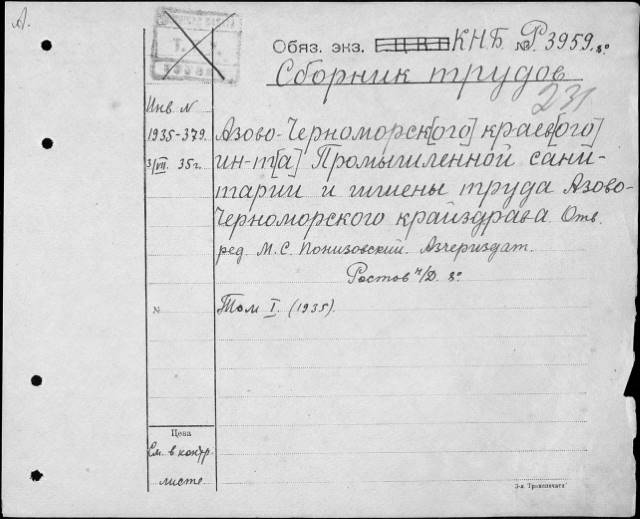 А.
Обяз. экз. Е.Ц.К.П К.Н.Б. № Р. 3959. 8°
Сборник трудов
231
Инв. N
1935-379.
3/VII. 35 г.
Азово-Черноморск[ого] краев[ого]
ин-т[а] Промышленной сани-
тарии и гигиены труда Азово-
Черноморского крайздрава. Отв.
ред. М. С. Понизовский. Азчериздат.
Ростов н/Д. 8°
№
Том I. (1935).
Цена
См. в контр.
листе
3-я Транспечать